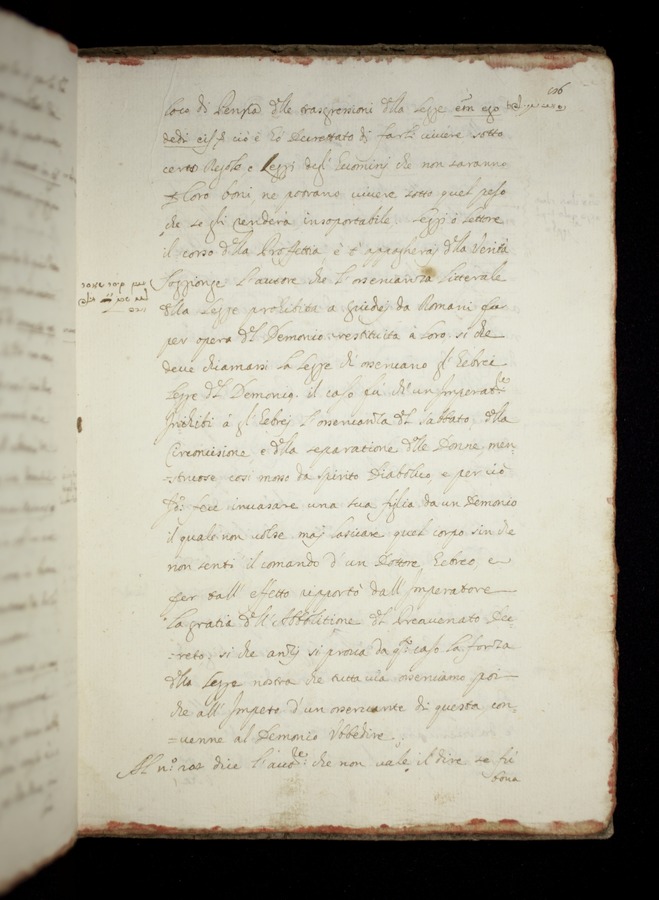 106
loco di Pensa delle trasgressioni della Legge etm ego
dedi eis & ciò è Ho Decrettato di farli vivere sotto
certe Regole e Leggi degl' Huomini che non saranno
p loro boni ne potrano vivere sotto quel peso
che se gli renderà insoportabile. leggi o lettore
il corso della Proffettia è t' appagherai della Verità
Soggionge l'autore che l'osservanza litterale
della Legge prohibita a giudei da Romani fu
per opera del Demonio restituita à loro. si che
deve chiamarsi la legge ch' osservano gl' Hebrei
Legge del Demonio. il caso fù ch' un Imperat.re
Inhibì à gl' Hebrei l'osservanza del Sabbato, della
Circoncisione, e della separatione delle Donne men:
:struose così mosso da spirito Diabolico, e per ciò
Id: fece invasare una sua figlia da un Demonio
il quale non volse mai lasciare quel corpo sin che
non sentì il comando d' un Dottore Hebreo, e
per dall' effetto rapportò dall' Imperatore
la gratia dell' Abbolitione del Preavenato De:
:creto; si che anzi si prova da q.to caso la forza
della Legge nostra che tutta via osserviamo poi
che all' Impeto d' un osservante di questa con:
:venne al Demonio Ubbedire.
Al n.o 202 dice l'aut.re che non vale il dire se fù
bona